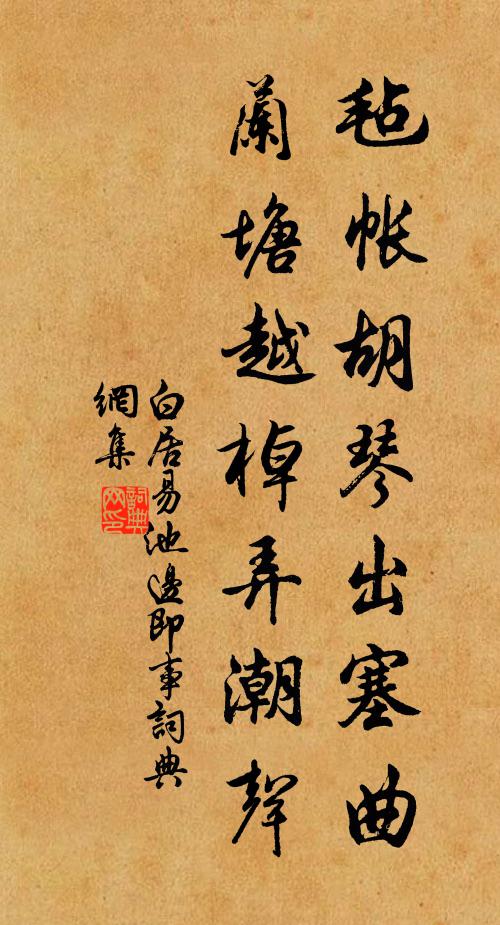 毡帐胡琴出塞曲
蘭塘越棹弄潮聲
白居易池邊即事詞典
網集
詞典网印